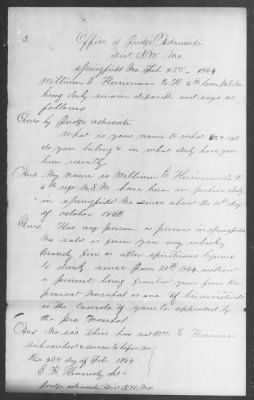 3
Office of Judge Advocate
Dist S.W. Mo
Springfield Mo Feb 23rd 1864
William E Herriman Co H 6th Cav M.S.M.
being duly sworn deposes and says as
follows
Ques by Judge advocate
What is your name to what Co & regt
do you belong & on what duty have you
been recently
Ans My name is William E Herriman Co H
6th regt M.S.M. have been on police duty
in Springfield Mo since about the 10th day
of October 1863
Ques Has any person or persons in Springfield
Mo sold or given you any whisky
Brandy Gin or other spirituous liquors
to drink since Jan 20th 1864 without
a permit being granted you from the
provost Marshal or one of his assistants
or the Consent of your Co approved by
the Pro Marshal
Ans No sir they has not Wm E Herriman
subscribed & sworn to before me
this 23rd day of Feb 1864
Judge advocate Dist S.W. Mo